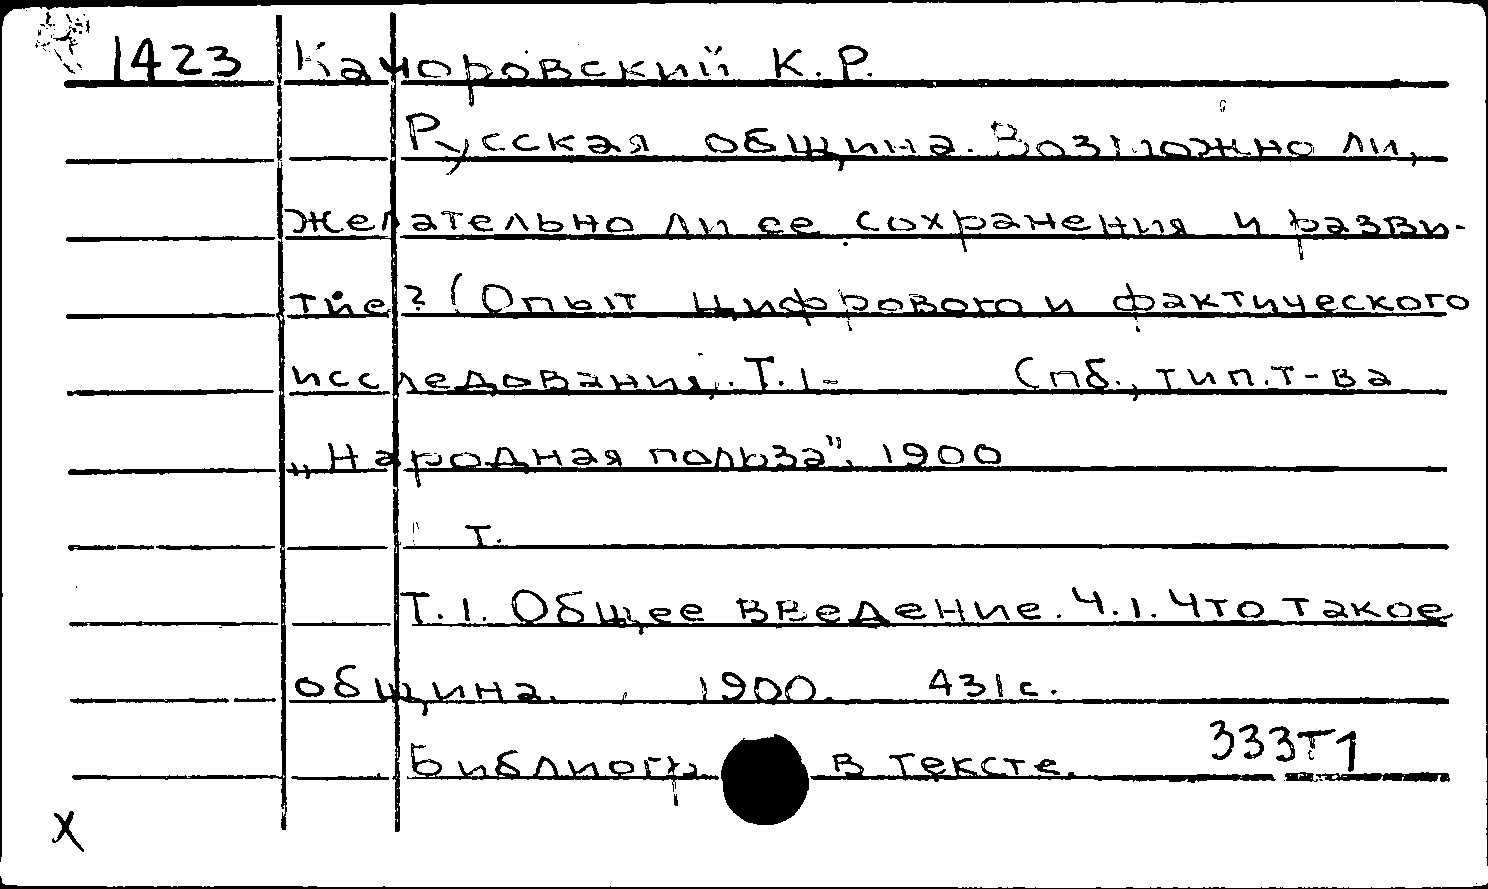 1423 Качоровский К. Р.
Русская община. Возможно ли,
желательно ли ее сохранения и разви-
тие? (Опыт цифрового и фактического
исследования. Т. 1- Спб., тип. т-ва
„Народная польза", 1900
Т.
Т. 1. Общее введение. Ч. 1. Что такое
община. 1900. 431 с.
Библиогр. в тексте. 333Т1
X